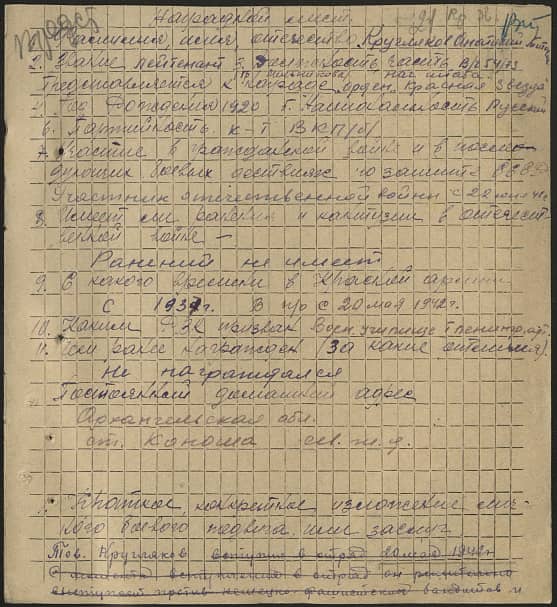 Наградной лист.
Фамилия, имя, отчество Кругляков Анатолий
2. Звание лейтенант 3. Должность, часть В/ч
нач. штаба.
Представляется к награде орден. Красная Звезда
4. Год Рождения 1920 г. Национальность Русский
6. Партийность к-т ВКП/б/
7. Участие в гражданской войне и в последующих
боевых действиях по защите СССР
Участник отечественной войны с
8. Имеет ли ранения и контузии в отечест
венной войне —
Ранений не имеет
9. С какого времени в Красной армии
С 1939г. В п/о с 20 мая 1942г.
10. Каким РВК призван Воен. училище г. Ленинград
11. Чем ранее награжден (за какие отличия).
не награждался
Постоянный домашний адрес
Архангельская обл.
ст. Коноша
1. Краткое, конкретное изложение лич-
ного боевого подвига или заслуг
Тов. Кругляков вступив в отряд 20 мая 1942г
вступления в отряд он
выступает против немецко-фашистских бандитов и